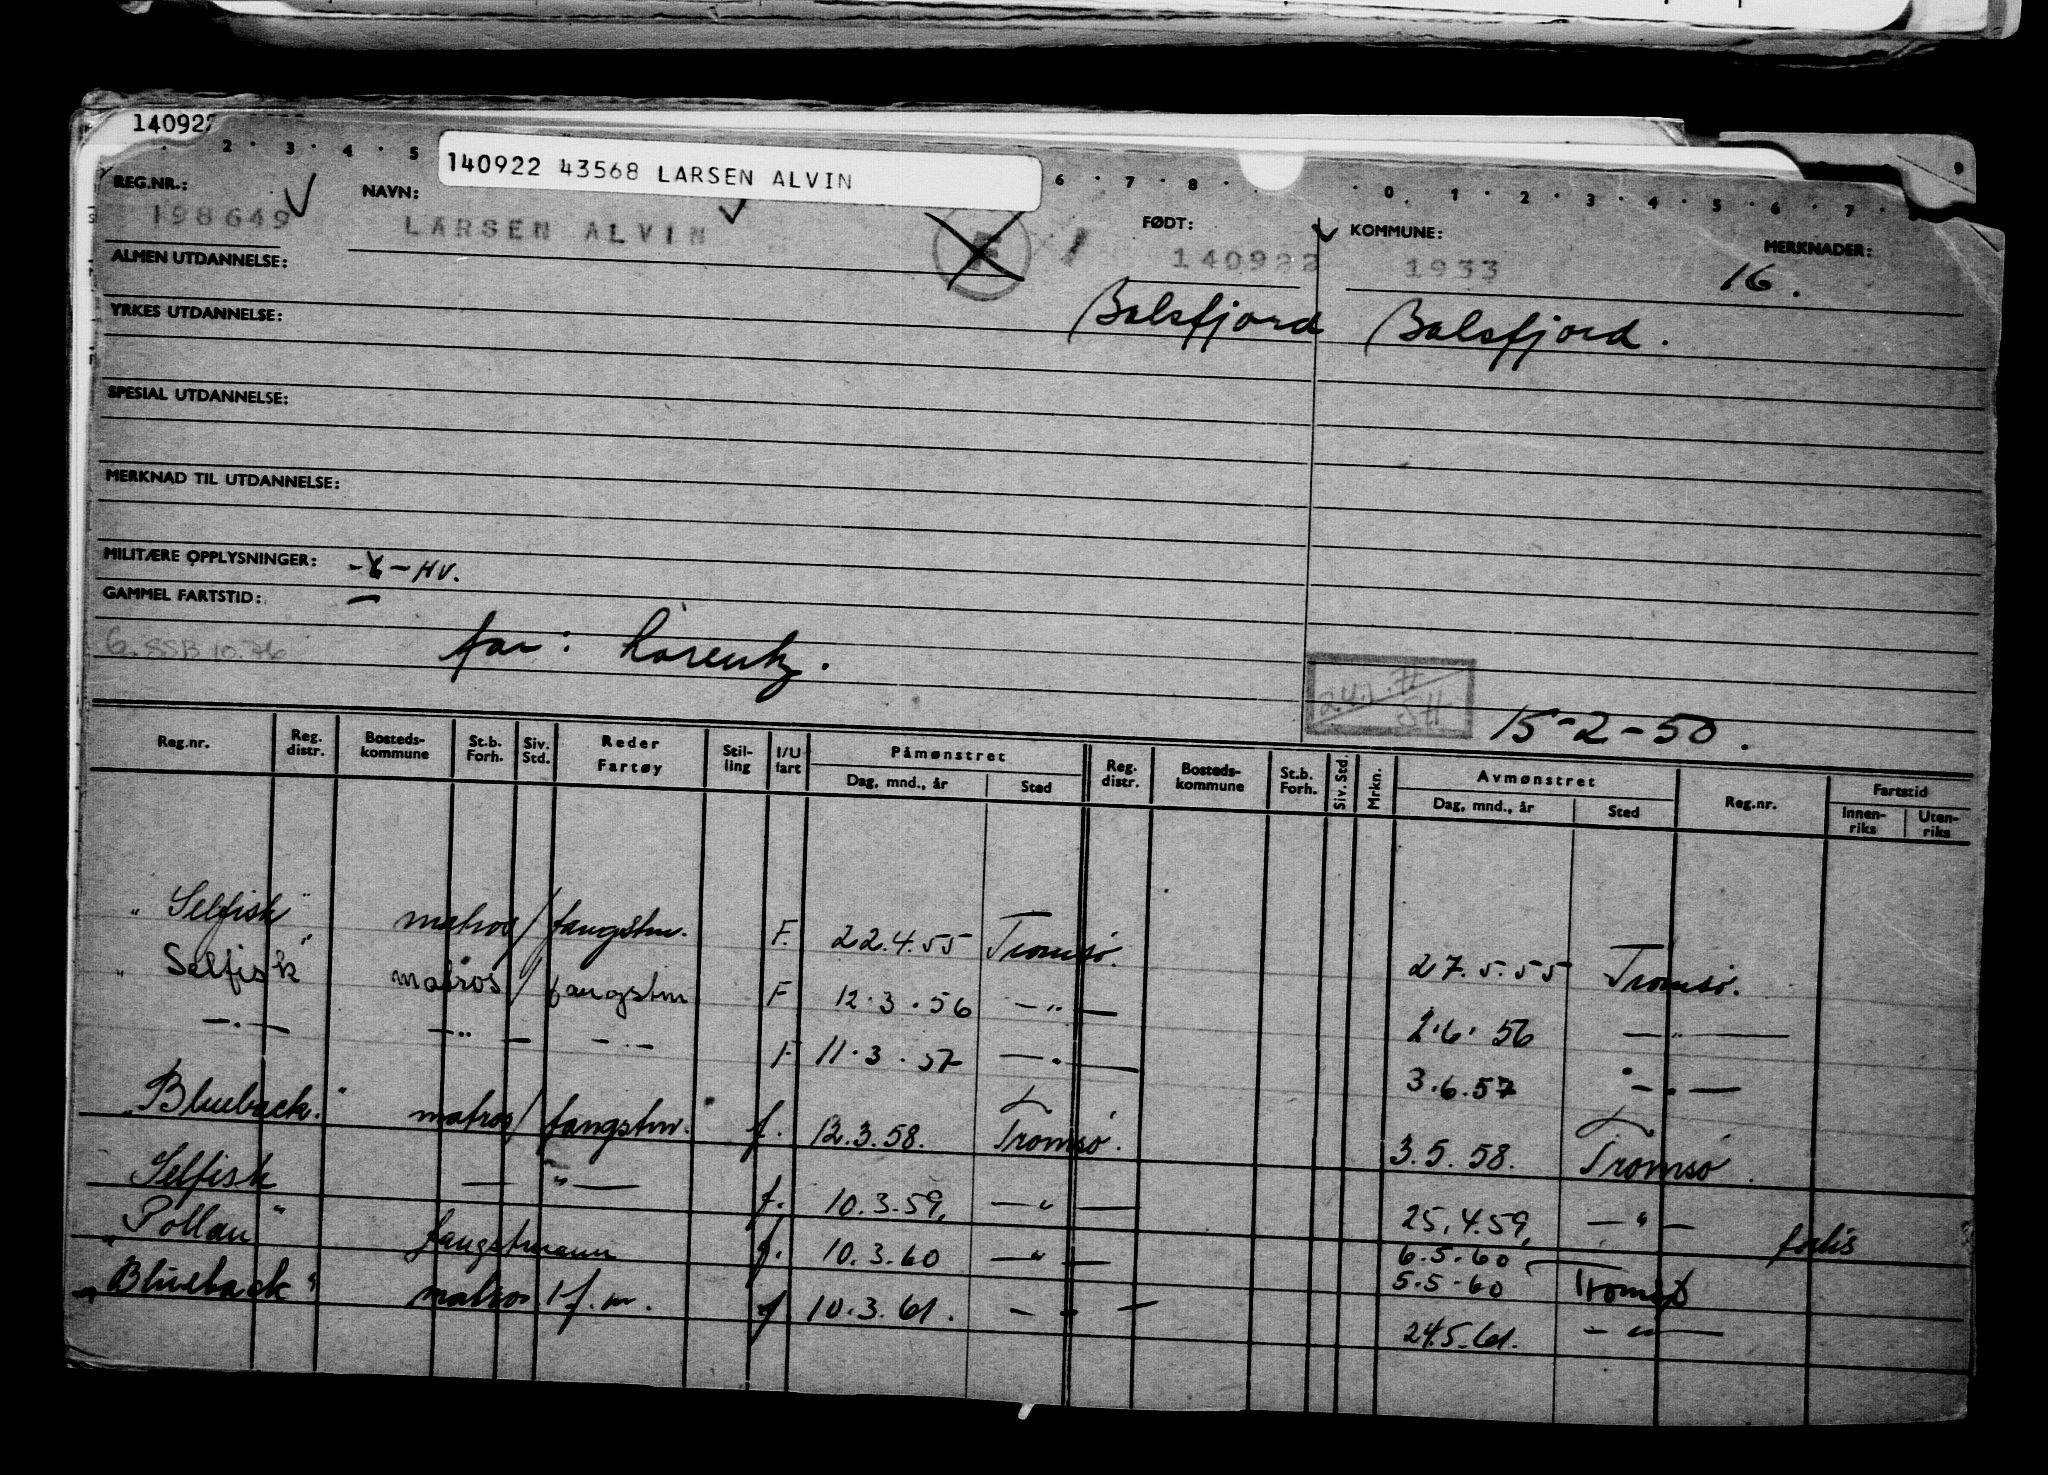 140922
2 · 3 · 4 · 5
140922 43568 LARSEN ALVIN
6 · 7 · 8 · · 0 · 1 · 2 · 3 · 4 · 5 · 6 · 7 · 8
9
REG.NR.: NAVN: FØDT: KOMMUNE: MERKNADER:
198649 LARSEN ALVIN F 140922 1933 16.
ALMEN UTDANNELSE:
Balsfjord Balsfjord.
YRKES UTDANNELSE:
SPESIAL UTDANNELSE:
MERKNAD TIL UTDANNELSE:
MILITÆRE OPPLYSNINGER: HV.
GAMMEL FARTSTID: —
6. SSB 10.76
far: Lorentz.
15-2-50.
Reg.nr. Reg. distr. Bosteds-kommune St.b. Forh. Siv. Std. Reder Fartøy Stil-ling I/U fart Påmønstret Dag, mnd., år Sted Reg. distr. Bosteds-kommune St.b. Forh. Siv. Std. Mrkn. Avmønstret Dag, mnd., år Sted Reg.nr. Fartstid Innen-riks Uten-riks
"Selfisk" matros/fangstm. F. 22.4.55 Tromsø. 27.5.55 Tromsø.
"Selfisk" matros/fangstm F 12.3.56 —"— 2.6.56 —"—
—"— —"— —"— F 11.3.57 —"— 3.6.57 —"—
"Blueback." matros/fangstm. f. 12.3.58. Tromsø. 3.5.58. Tromsø.
Selfisk —"— f. 10.3.59, —"— 25.4.59, —"— forlis
"Pollau" fangstmann f. 10.3.60 —"— 6.5.60
5.5.60 Tromsø
"Blueback" matros/f.m. f 10.3.61. —"— 24.5.61. —"—